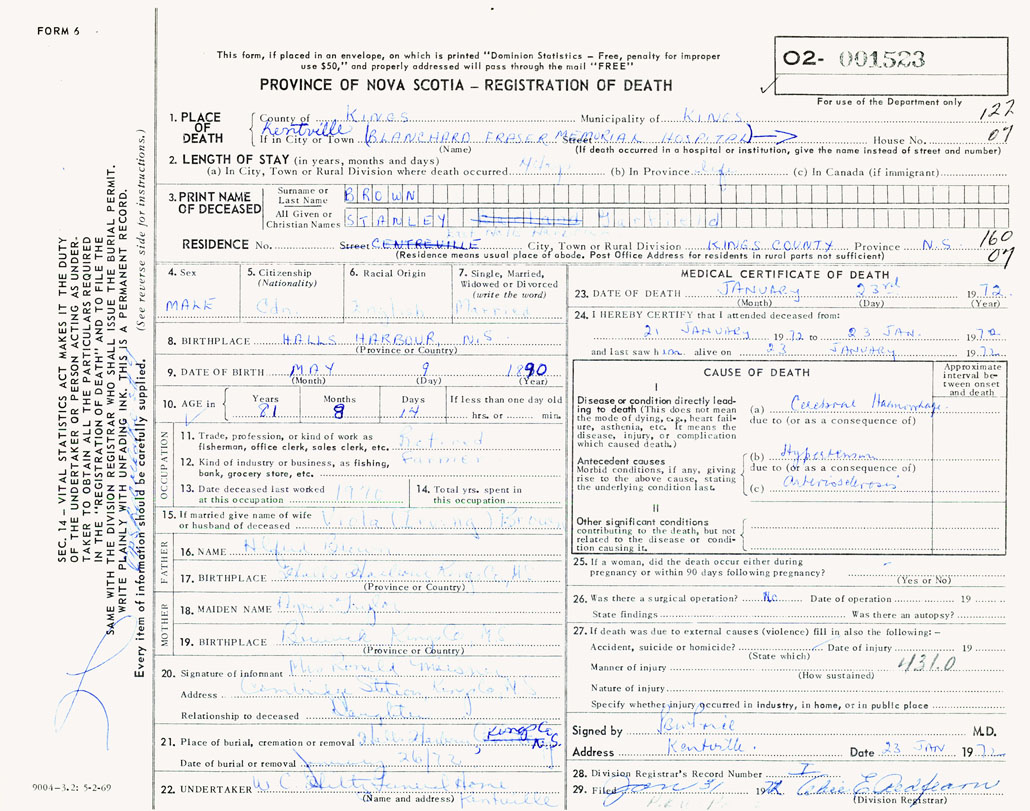 FORM 6
This form, if placed in an envelope, on which is printed "Dominion Statistics – Free, penalty for improper
use $50," and properly addressed will pass through the mail "FREE"
PROVINCE OF NOVA SCOTIA – REGISTRATION OF DEATH
O2- 001523
For use of the Department only
1. PLACE OF DEATH
County of KINGS Municipality of KINGS 127
If in City or Town Kentville (BLANCHARD FRASER MEMORIAL HOSPITAL) Street House No. 07
(Name) (If death occurred in a hospital or institution, give the name instead of street and number)
2. LENGTH OF STAY (in years, months and days)
(a) In City, Town or Rural Division where death occurred (b) In Province life (c) In Canada (if immigrant)
3. PRINT NAME OF DECEASED
Surname or Last Name BROWN
All Given or Christian Names STANLEY
RESIDENCE No. Street CENTREVILLE City, Town or Rural Division KINGS COUNTY Province N.S. 160
(Residence means usual place of abode. Post Office Address for residents in rural parts not sufficient) 07
4. Sex MALE
5. Citizenship (Nationality) Cdn
6. Racial Origin English
7. Single, Married, Widowed or Divorced (write the word) Married
8. BIRTHPLACE HALLS HARBOUR, N.S
(Province or Country)
9. DATE OF BIRTH MAY 9 1890
(Month) (Day) (Year)
10. AGE in Years 81 Months 8 Days 14 If less than one day old hrs. or min.
OCCUPATION
11. Trade, profession, or kind of work as fisherman, office clerk, sales clerk, etc. Retired
12. Kind of industry or business, as fishing, bank, grocery store, etc. Farmer
13. Date deceased last worked at this occupation 1970
14. Total yrs. spent in this occupation
15. If married give name of wife or husband of deceased Viola Brown
FATHER
16. NAME Alfred Brown
17. BIRTHPLACE Halls Harbour Kings Co. N.S.
(Province or Country)
MOTHER
18. MAIDEN NAME
19. BIRTHPLACE Kings Co N.S
(Province or Country)
20. Signature of informant Mrs Ronald
Address Cambridge Station Kings Co. N.S
Relationship to deceased Daughter
21. Place of burial, cremation or removal Halls Harbour, Kings Co. N.S.
Date of burial or removal January 26/72
22. UNDERTAKER Funeral Home
(Name and address) Kentville
MEDICAL CERTIFICATE OF DEATH
23. DATE OF DEATH JANUARY 23rd 1972
(Month) (Day) (Year)
24. I HEREBY CERTIFY that I attended deceased from:
21 JANUARY 1972 to 23 JAN. 1972
and last saw him alive on 23 JANUARY 1972
CAUSE OF DEATH
Approximate interval between onset and death
I
Disease or condition directly leading to death (This does not mean the mode of dying, e.g., heart failure, asthenia, etc. It means the disease, injury, or complication which caused death.)
(a) Cerebral Haemorrhage
due to (or as a consequence of)
Antecedent causes
Morbid conditions, if any, giving rise to the above cause, stating the underlying condition last.
(b) Hypertension
due to (or as a consequence of)
(c) Arteriosclerosis
II
Other significant conditions
contributing to the death, but not related to the disease or condition causing it.
25. If a woman, did the death occur either during pregnancy or within 90 days following pregnancy?
(Yes or No)
26. Was there a surgical operation? No Date of operation 19
State findings Was there an autopsy?
27. If death was due to external causes (violence) fill in also the following:–
Accident, suicide or homicide? Date of injury 19
(State which)
Manner of injury 431.0
(How sustained)
Nature of injury
Specify whether injury occurred in industry, in home, or in public place
Signed by M.D.
Address Kentville. Date 23 JAN 1972
28. Division Registrar's Record Number
29. Filed Jan 31 19
(Division Registrar)
SEC. 14 – VITAL STATISTICS ACT MAKES IT THE DUTY
OF THE UNDERTAKER OR PERSON ACTING AS UNDER-
TAKER TO OBTAIN ALL THE PARTICULARS REQUIRED
IN THE "REGISTRATION OF DEATH" AND TO FILE THE
SAME WITH THE DIVISION REGISTRAR WHO SHALL ISSUE THE BURIAL PERMIT.
WRITE PLAINLY WITH UNFADING INK. THIS IS A PERMANENT RECORD.
Every item of information should be carefully supplied. (See reverse side for instructions.)
9004–3.2: 5-2-69